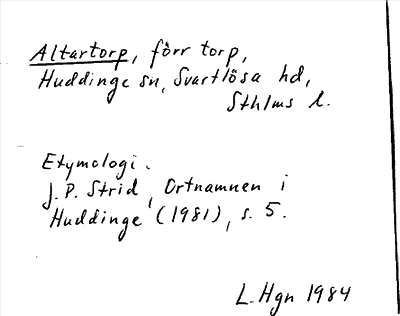 Altartorp, förr torp,
Huddinge sn, Svartlösa hd,
Sthlms l.
Etymologi.
J.P. Strid, Ortnamnen i
Huddinge (1981), s. 5.
L. Hgn 1984